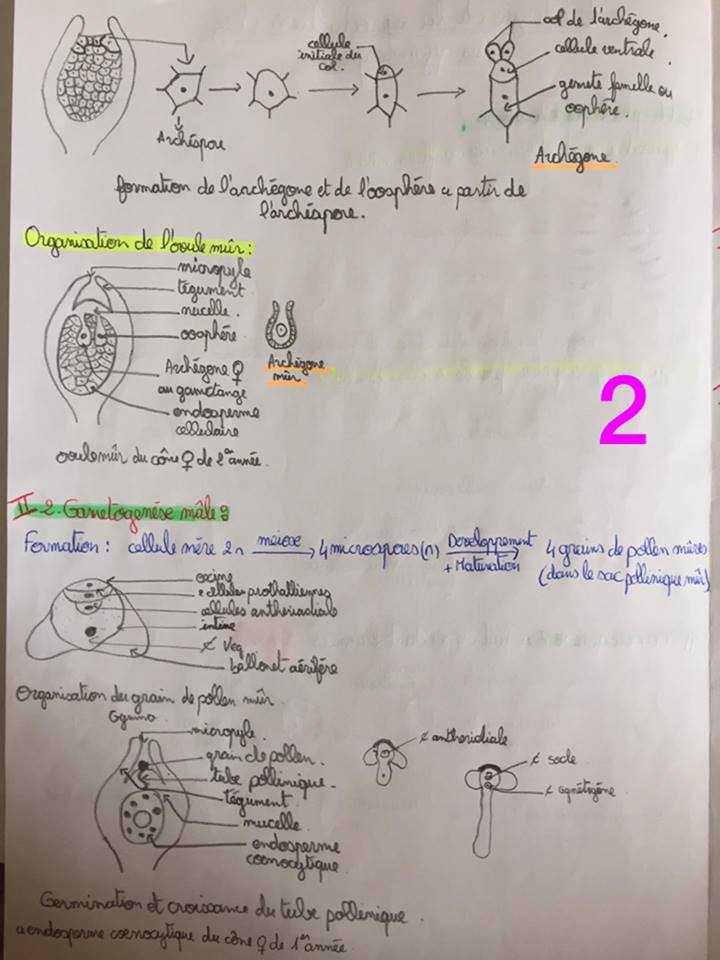 col de l'archégone.
cellule initiale du col.
cellule centrale
gamète femelle ou oosphère.
Archéspore
Archégone.
formation de l'archégone et de l'oosphère a partir de
l'archéspore.
Organisation de l'ovule mûr :
micropyle
tégument
nucelle.
oosphère
Archégone ♀
au gamétange
endosperme
cellulaire
Archégone
mûr
ovule mûr du cône ♀ de 2ème année.
2
II 2. Gamétogenèse mâle :
Formation : cellule mère 2n meïose 4 microspores (n) Developpement + Maturation 4 grains de pollen mûres
(dans le sac pollinique mûr)
exine
2 cellules prothalliennes
cellules antheridiale
intine
¢ Veg
ballonet aérifère
Organisation du grain de pollen mûr
Gymno
micropyle.
grain de pollen.
tube pollinique.
tégument.
nucelle.
endosperme
coenocytique
¢ antheridiale
¢ socle
¢ gamétogène
Germination et croissance du tube pollinique.
a endosperme coenocytique du cône ♀ de 1ère année.